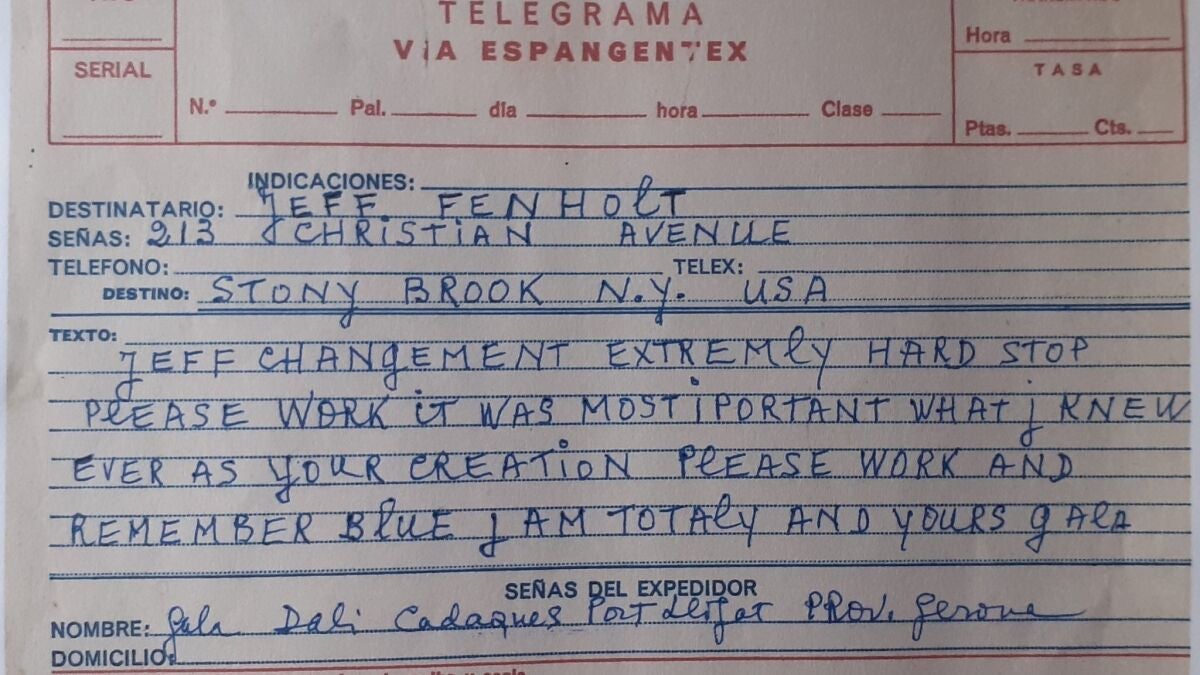 TELEGRAMA
VIA ESPANGENTEX
SERIAL
N.º Pal. día hora Clase
Hora
TASA
Ptas. Cts.
INDICACIONES:
DESTINATARIO: JEFF. FENHOLT
SEÑAS: 213 CHRISTIAN AVENUE
TELEFONO: TELEX:
DESTINO: STONY BROOK N.Y. USA
TEXTO:
JEFF CHANGEMENT EXTREMLY HARD STOP
PLEASE WORK IT WAS MOST IPORTANT WHAT J KNEW
EVER AS YOUR CREATION PLEASE WORK AND
REMEMBER BLUE J AM TOTALY AND YOURS GALA
SEÑAS DEL EXPEDIDOR
NOMBRE: Gala Dali Cadaques Port Lligat PROV. Gerona
DOMICILIO: